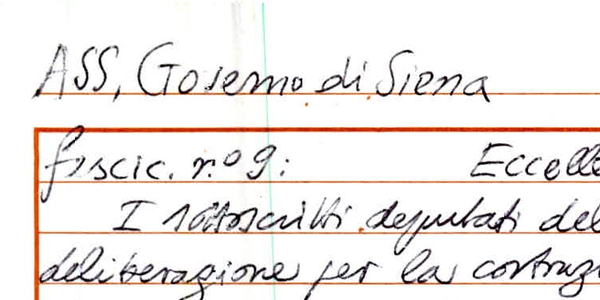 ASS, Governo di Siena
fascic. n.º 9: Eccelle
I sottoscritti deputati del
deliberazione per la costruz